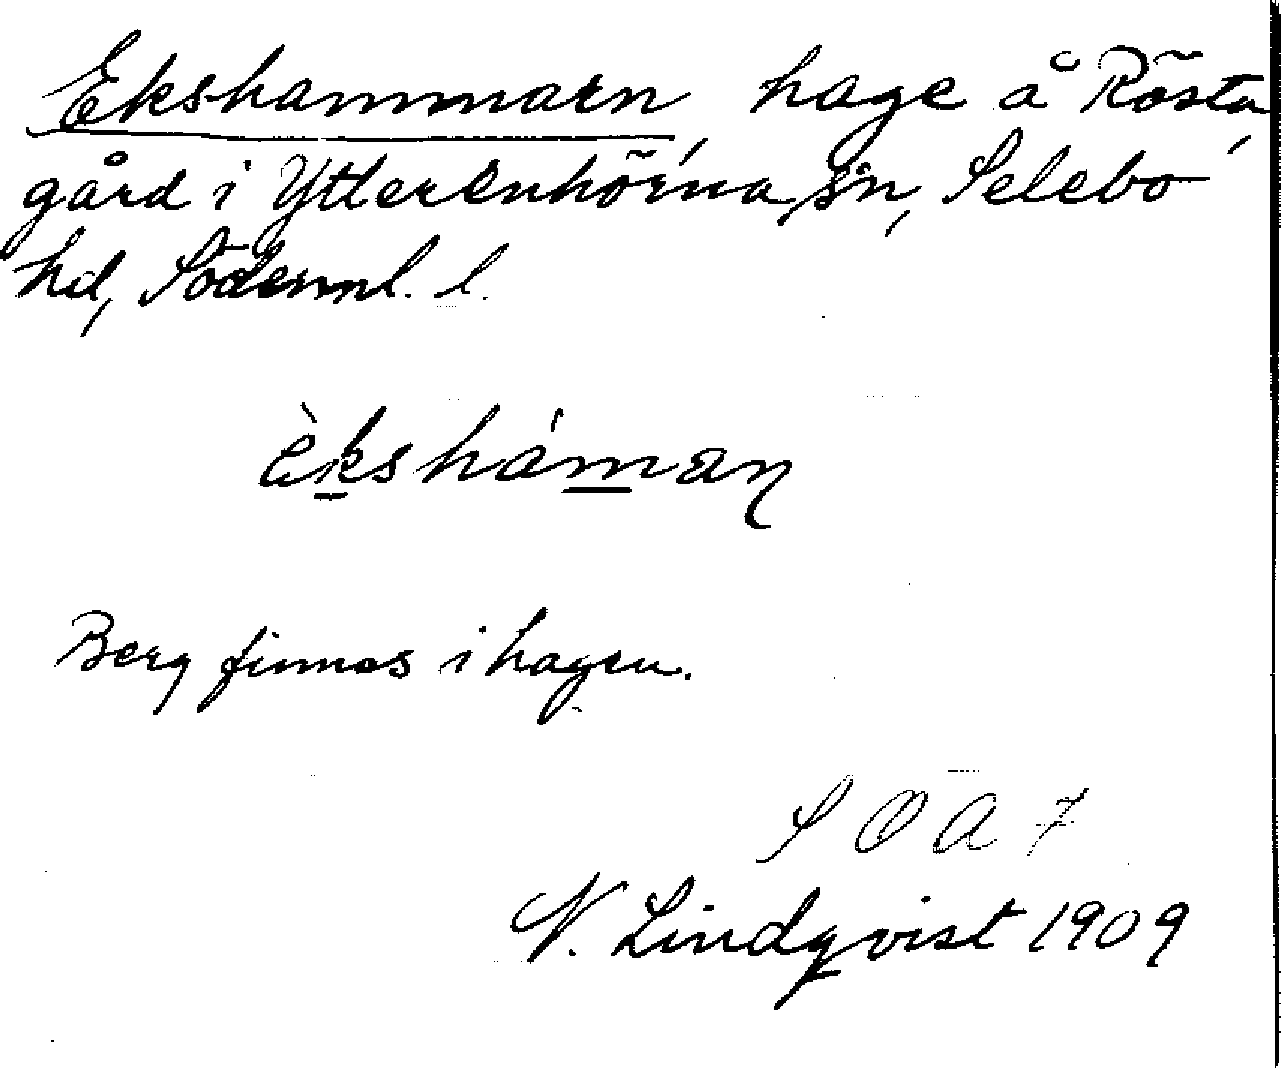 Ekshammarn, hage å Rösta
gård i Ytterenhörna sn, Selebo
hd, Söderml. l.
èkshámaṇ
Berg finnes i hagen.
S O A 7
N. Lindqvist 1909